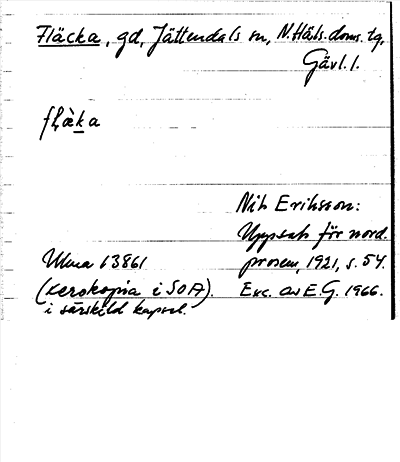 Fläcka, gd, Jättendals sn, N. Häls. doms. tg,
Gävl. l.
flæ̀ka
Nils Eriksson:
Uppsats för nord.
prosem, 1921, s. 54.
Exc. av E.G. 1966.
Ulma 13861
(Xerokopia i SOA).
i särskild kapsel.